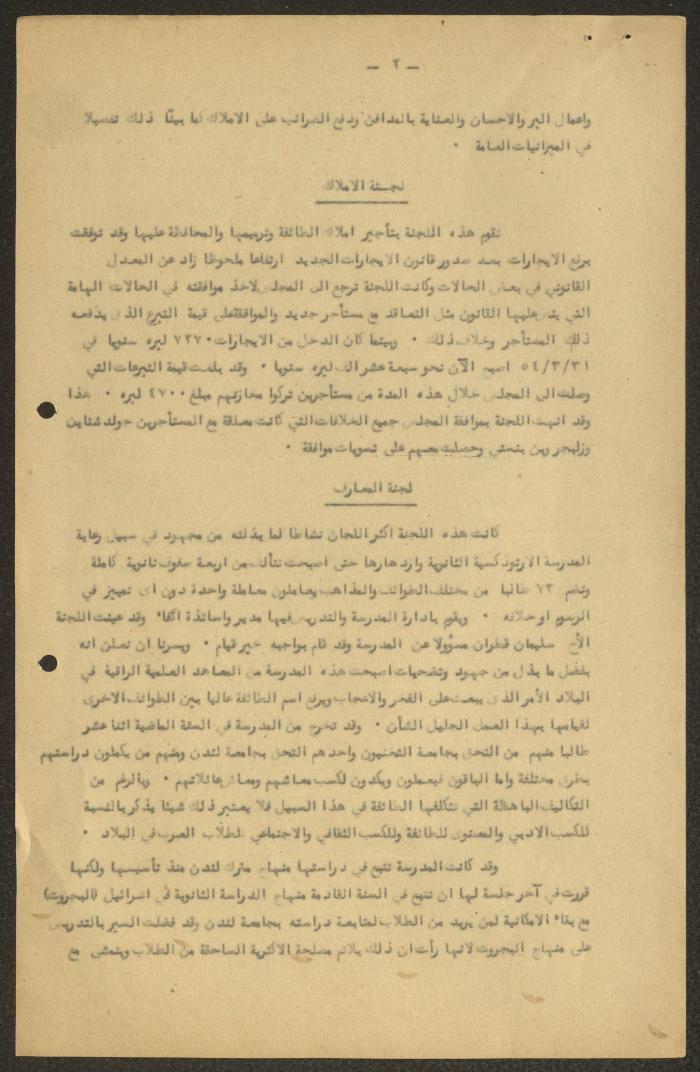 — ٢ —
واعمال البر والاحسان والعناية بالمدافن ودفع الضرائب على الاملاك كما بينّا ذلك تفصيلا
في الميزانيات العامة ٠
لجنة الاملاك
تقوم هذه اللجنة بتأجير املاك الطائفة وترميمها والمحافظة عليها وقد توفقت
برفع الايجارات بعد صدور قانون الايجارات الجديد ارتفاعا ملحوظا زاد عن المعدل
القانوني في بعض الحالات وكانت اللجنة ترجع الى المجلس لاخذ موافقته في الحالات الهامة
التي ينص عليها القانون مثل التعاقد مع مستأجر جديد والموافقة على قيمة التبرع الذى يدفعه
ذلك المستأجر وخلاف ذلك ٠ وبينما كان الدخل من الايجارات ٧٢٧٠ ليره سنويا في
٥٤/٣/٣١ اصبح الآن نحو سبعة عشر الف ليره سنويا ٠ وقد بلغت قيمة التبرعات التي
وصلت الى المجلس خلال هذه المدة من مستأجرين تركوا مخازنهم مبلغ ٤٧٠٠ ليره ٠ هذا
وقد انهت اللجنة بموافقة المجلس جميع الخلافات التي كانت معلقة مع المستأجرين جولد شتاين
وزليجر وبن ينستي وحصلت معهم على تسويات موافقة ٠
لجنة المعارف
كانت هذه اللجنة اكثر اللجان نشاطا لما بذلته من مجهود في سبيل رعاية
المدرسة الارثوذكسية الثانوية وازدهارها حتى اصبحت تتألف من اربعة صفوف ثانوية كاملة
وتضم ٧٣ طالبا من مختلف الطوائف والمذاهب يعاملون معاملة واحدة دون اى تمييز في
الرسوم او خلافه ٠ ويقوم بادارة المدرسة والتدريس فيها مدير واساتذة اكفاء وقد عينت اللجنة
الأخ سليمان قطران مسؤولا عن المدرسة وقد قام بواجبه خير قيام ٠ ويسرنا ان نعلن انه
بفضل ما بذل من جهود وتضحيات اصبحت هذه المدرسة من المعاهد العلمية الراقية في
البلاد الأمر الذى يبعث على الفخر والاعجاب ويرفع اسم الطائفة عاليا بين الطوائف الاخرى
لقيامها بهذا العمل الجليل الشأن ٠ وقد تخرج من المدرسة في السنة الماضية اثنا عشر
طالبا منهم من التحق بجامعة التخنيون واحدهم التحق بجامعة لندن ومنهم من يكملون دراستهم
بطرق مختلفة واما الباقون فيعملون ويكدون لكسب معاشهم ومعاش عائلاتهم ٠ وبالرغم من
التكاليف الباهظة التي تتكلفها الطائفة في هذا السبيل فلا يعتبر ذلك شيئا يذكر بالنسبة
للكسب الادبي والمعنوى للطائفة وللكسب الثقافي والاجتماعي للطلاب العرب في البلاد ٠
وقد كانت المدرسة تتبع في دراستها منهاج مترك لندن منذ تأسيسها ولكنها
قررت في آخر جلسة لها ان تتبع في السنة القادمة منهاج الدراسة الثانوية في اسرائيل (البجروت)
مع بقاء الامكانية لمن يريد من الطلاب لمتابعة دراسته بجامعة لندن وقد فضلت السير بالتدريس
على منهاج البجروت لانها رأت ان ذلك يلائم مصلحة الاكثرية الساحقة من الطلاب ويتمشى مع